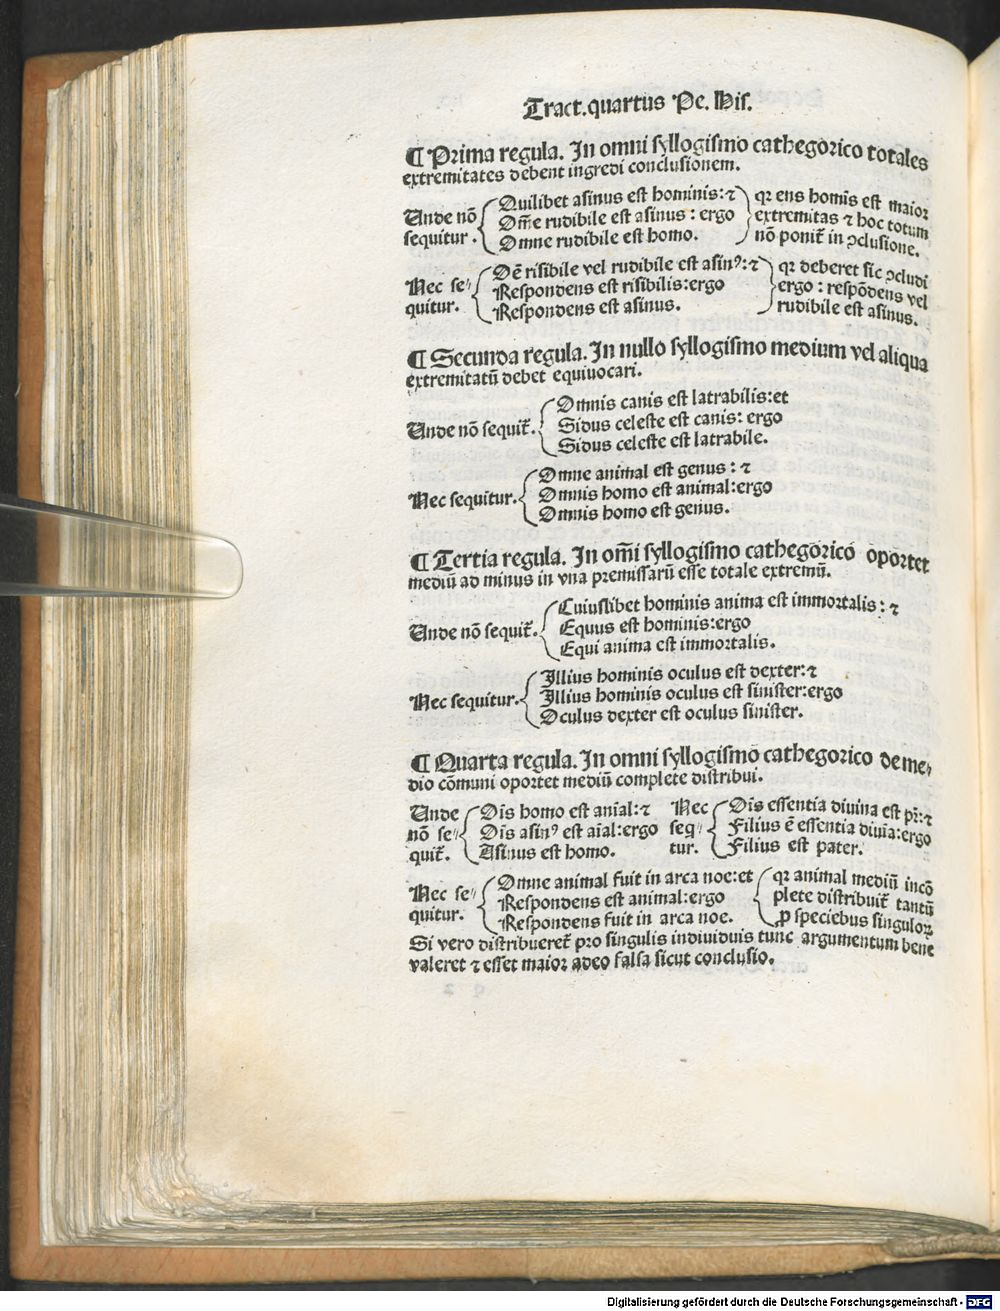 Tract.quartus Pe. His.
¶ Prima regula. In omni syllogismo cathegorico totales
extremitates debent ingredi conclusionem.
Unde nō
sequitur.
Quilibet asinus est hominis: ⁊
Om̄e rudibile est asinus: ergo
Omne rudibile est homo.
qꝛ ens homīs est maior
extremitas ⁊ hoc totum
nō ponit̄ in ꝯclusione.
Nec se⸗
quitur.
Oē risibile vel rudibile est asinꝰ: ⁊
Respondens est risibilis: ergo
Respondens est asinus.
qꝛ deberet sic ꝯcludi
ergo: respōdens vel
rudibile est asinus.
¶ Secunda regula. In nullo syllogismo medium vel aliqua
extremitatū debet equivocari.
Unde nō sequit̄.
Omnis canis est latrabilis: et
Sidus celeste est canis: ergo
Sidus celeste est latrabile.
Nec sequitur.
Omne animal est genus: ⁊
Omnis homo est animal: ergo
Omnis homo est genus.
¶ Tertia regula. In om̄i syllogismo cathegorico oportet
mediū ad minus in vna premissarū esse totale extremū.
Unde nō sequit̄.
Cuiuslibet hominis anima est immortalis: ⁊
Equus est hominis: ergo
Equi anima est immortalis.
Nec sequitur.
Illius hominis oculus est dexter: ⁊
Illius hominis oculus est sinister: ergo
Oculus dexter est oculus sinister.
¶ Quarta regula. In omni syllogismo cathegorico de me⸗
dio cōmuni oportet mediū complete distribui.
Unde
nō se⸗
quit̄.
Oīs homo est aīal: ⁊
Oīs asinꝰ est aīal: ergo
Asinus est homo.
Nec
seq̄⸗
tur.
Oīs essentia divina est pr̄: ⁊
Filius ē essentia diuīa: ergo
Filius est pater.
Nec se⸗
quitur.
Omne animal fuit in arca noe: et
Respondens est animal: ergo
Respondens fuit in arca noe.
qꝛ animal mediū incō
plete distribuit̄ tantū
ꝓ speciebus singuloꝝ
Si vero distribueret̄ pro singulis individuis tunc argumentum bene
valeret ⁊ esset maior adeo falsa sicut conclusio.
Digitalisierung gefördert durch die Deutsche Forschungsgemeinschaft - DFG